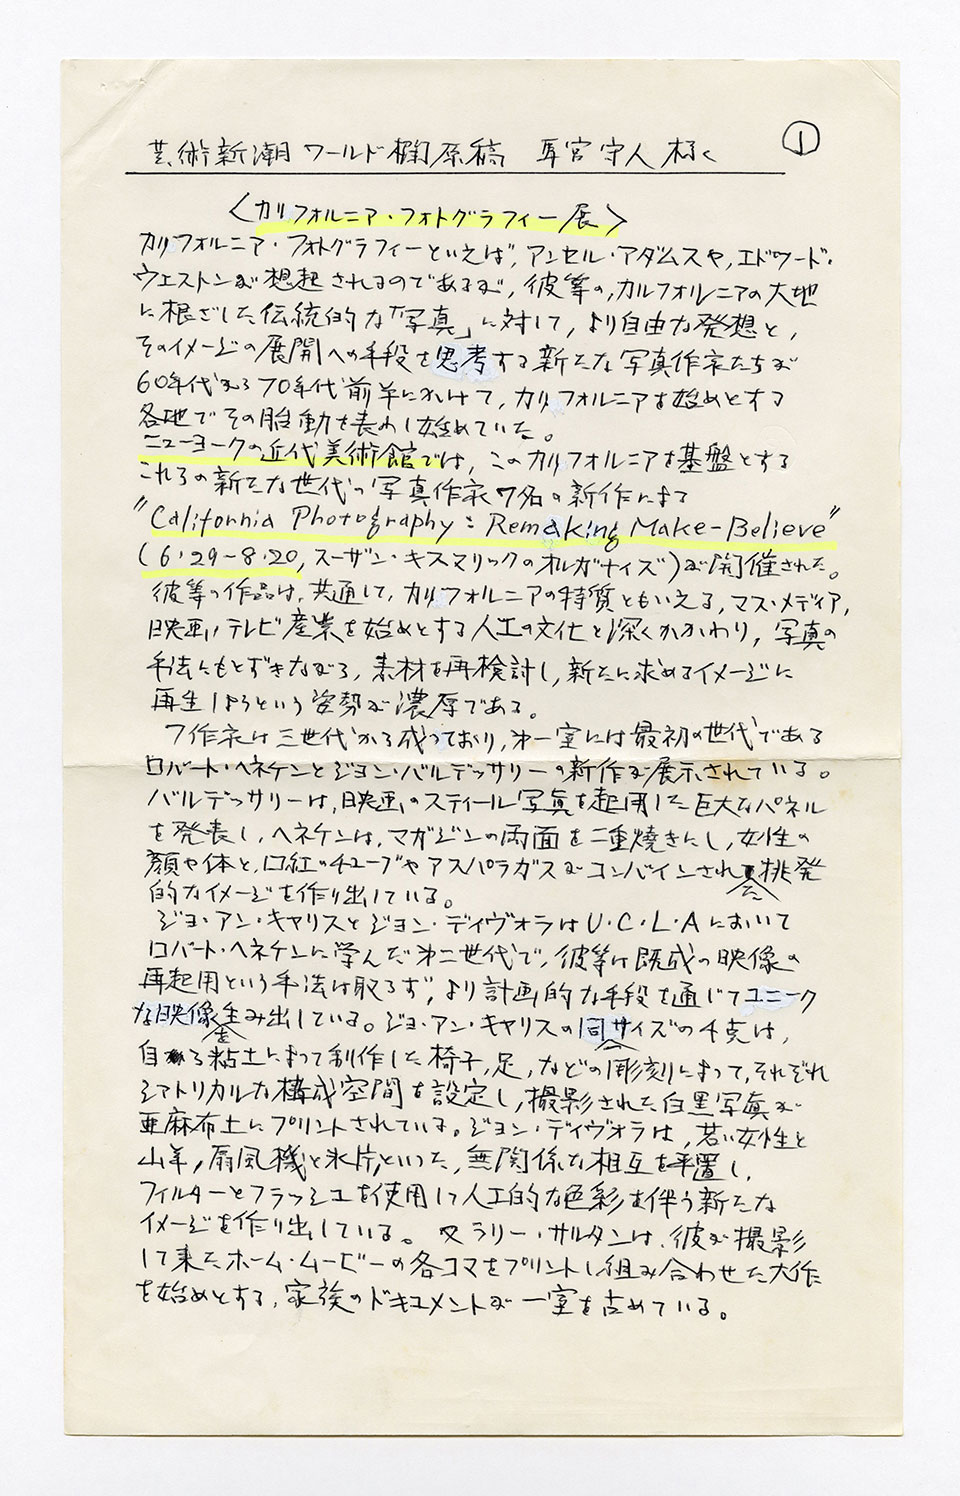 芸術新潮ワールド欄原稿 宮守人様 ①
〈カリフォルニア・フォトグラフィー展〉
カリフォルニア・フォトグラフィーといえば、アンセル・アダムスや、エドワード・
ウエストンが想起されるのであるが、彼等の、カルフォルニアの大地
に根ざした伝統的な「写真」に対して、より自由な発想と、
そのイメージの展開への手段を思考する新たな写真作家たちが
60年代から70年代前半にかけて、カリフォルニアを始めとする
各地でその胎動を表わし始めていた。
ニューヨークの近代美術館では、このカリフォルニアを基盤とする
これらの新たな世代の写真作家7名の新作による
"California Photography : Remaking Make-Believe"
(6・29-8・20, スーザン・キスマリックのオルガナイズ)が開催された。
彼等の作品は、共通して、カリフォルニアの特質ともいえる、マス・メディア、
映画、テレビ産業を始めとする人工の文化と深くかかわり、写真の
手法にもとずきながら、素材を再検討し、新たに求めるイメージに
再生しようという姿勢が濃厚である。
7作家は三世代から成っており、第一室には最初の世代である
ロバート・ヘネケンとジョン・バルデッサリーの新作が展示されている。
バルデッサリーは、映画のスティール写真を起用した巨大なパネル
を発表し、ヘネケンは、マガジンの両面を二重焼きにし、女性の
顔や体と、口紅のチューブやアスパラガスがコンバインされた挑発
的なイメージを作り出している。
ジョ・アン・キャリスとジョン・ディヴォラはU・C・L・Aにおいて
ロバート・ヘネケンに学んだ第二世代で、彼等は既成の映像の
再起用という手法は取らず、より計画的な手段を通じてユニーク
な映像を生み出している。ジョ・アン・キャリスの同サイズの4点は、
自から粘土によって制作した椅子、足、などの彫刻によって、それぞれ
シアトリカルな構成空間を設定し、撮影された白黒写真が
亜麻布上にプリントされている。ジョン・ディヴォラは、若い女性と
山羊、扇風機と氷片といった、無関係な相互を並置し、
フィルターとフラッシュを使用して人工的な色彩を伴う新たな
イメージを作り出している。又ラリー・サルタンは、彼が撮影
して来たホーム・ムービーの各コマをプリントし組み合わせた大作
を始めとする、家族のドキュメントが一室を占めている。